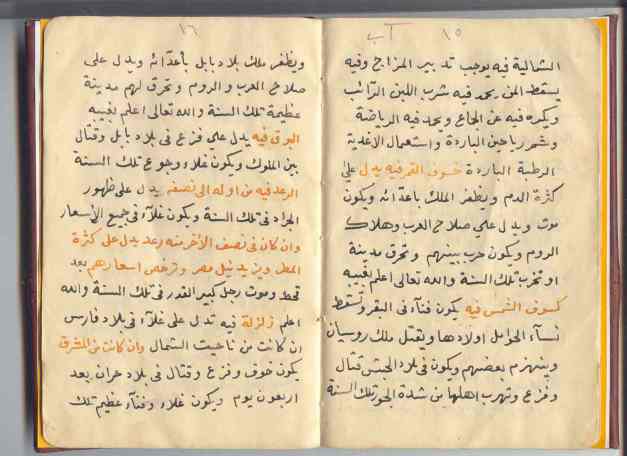 ١٥
الشمالية فيه يوجب تدبير المزاج وفيه
يسقط المن يحمد فيه شرب اللبن الرائب
ويكره فيه عن الجماع ويحمد فيه الرياضة
وشم رياحين الباردة واستعمال الاغدية
الرطبة الباردة خسوف القمر فيه يدل على
كثرة الدم ويظفر الملك باعدائه ويكون
موت ويدل على صلاح العرب وهلاك
الروم ويكون حرب بينهم وتحرق مدينة
او تخرب تلك السنة والله تعالى اعلم بغيبه
كسوف الشمس فيه يكون فنآء فى البقر وتسقط
نسآء الحوامل اولادها ويقتل ملك روسيان
وينهزم بعضهم ويكون فى بلاد الحبش قتال
وفزع وتهرب اهلها من شدة الجور تلك السنة
١٦
ويظفر ملك بلاد بابل بأعدائه ويدل على
صلاح العرب والروم وتحرق لهم مدينة
عظيمة تلك السنة والله تعالى اعلم بغيبه
البرق فيه يدل على فزع فى بلاد بابل وقتال
بين الملوك ويكون غلاء وجوع تلك السنة
الرعد فيه من اوله الى نصفه يدل على ظهور
الجراد فى تلك السنة ويكون غلآء فى جميع الأسعار
وان كان فى نصف الأخر منه رعد يدل على كثرة
المطر ويزيد نيل مصر وترخص اسعارهم بعد
قحط وموت رجل كبير القدر فى تلك السنة والله
اعلم زلزلة فيه تدل على غلآء فى بلاد فارس
ان كانت من ناحيت الشمال وان كانت من المشرق
يكون خوف وفزع وقتال فى بلاد حران بعد
اربعون يوم ويكون غلاء وفنآء عظيم تلك